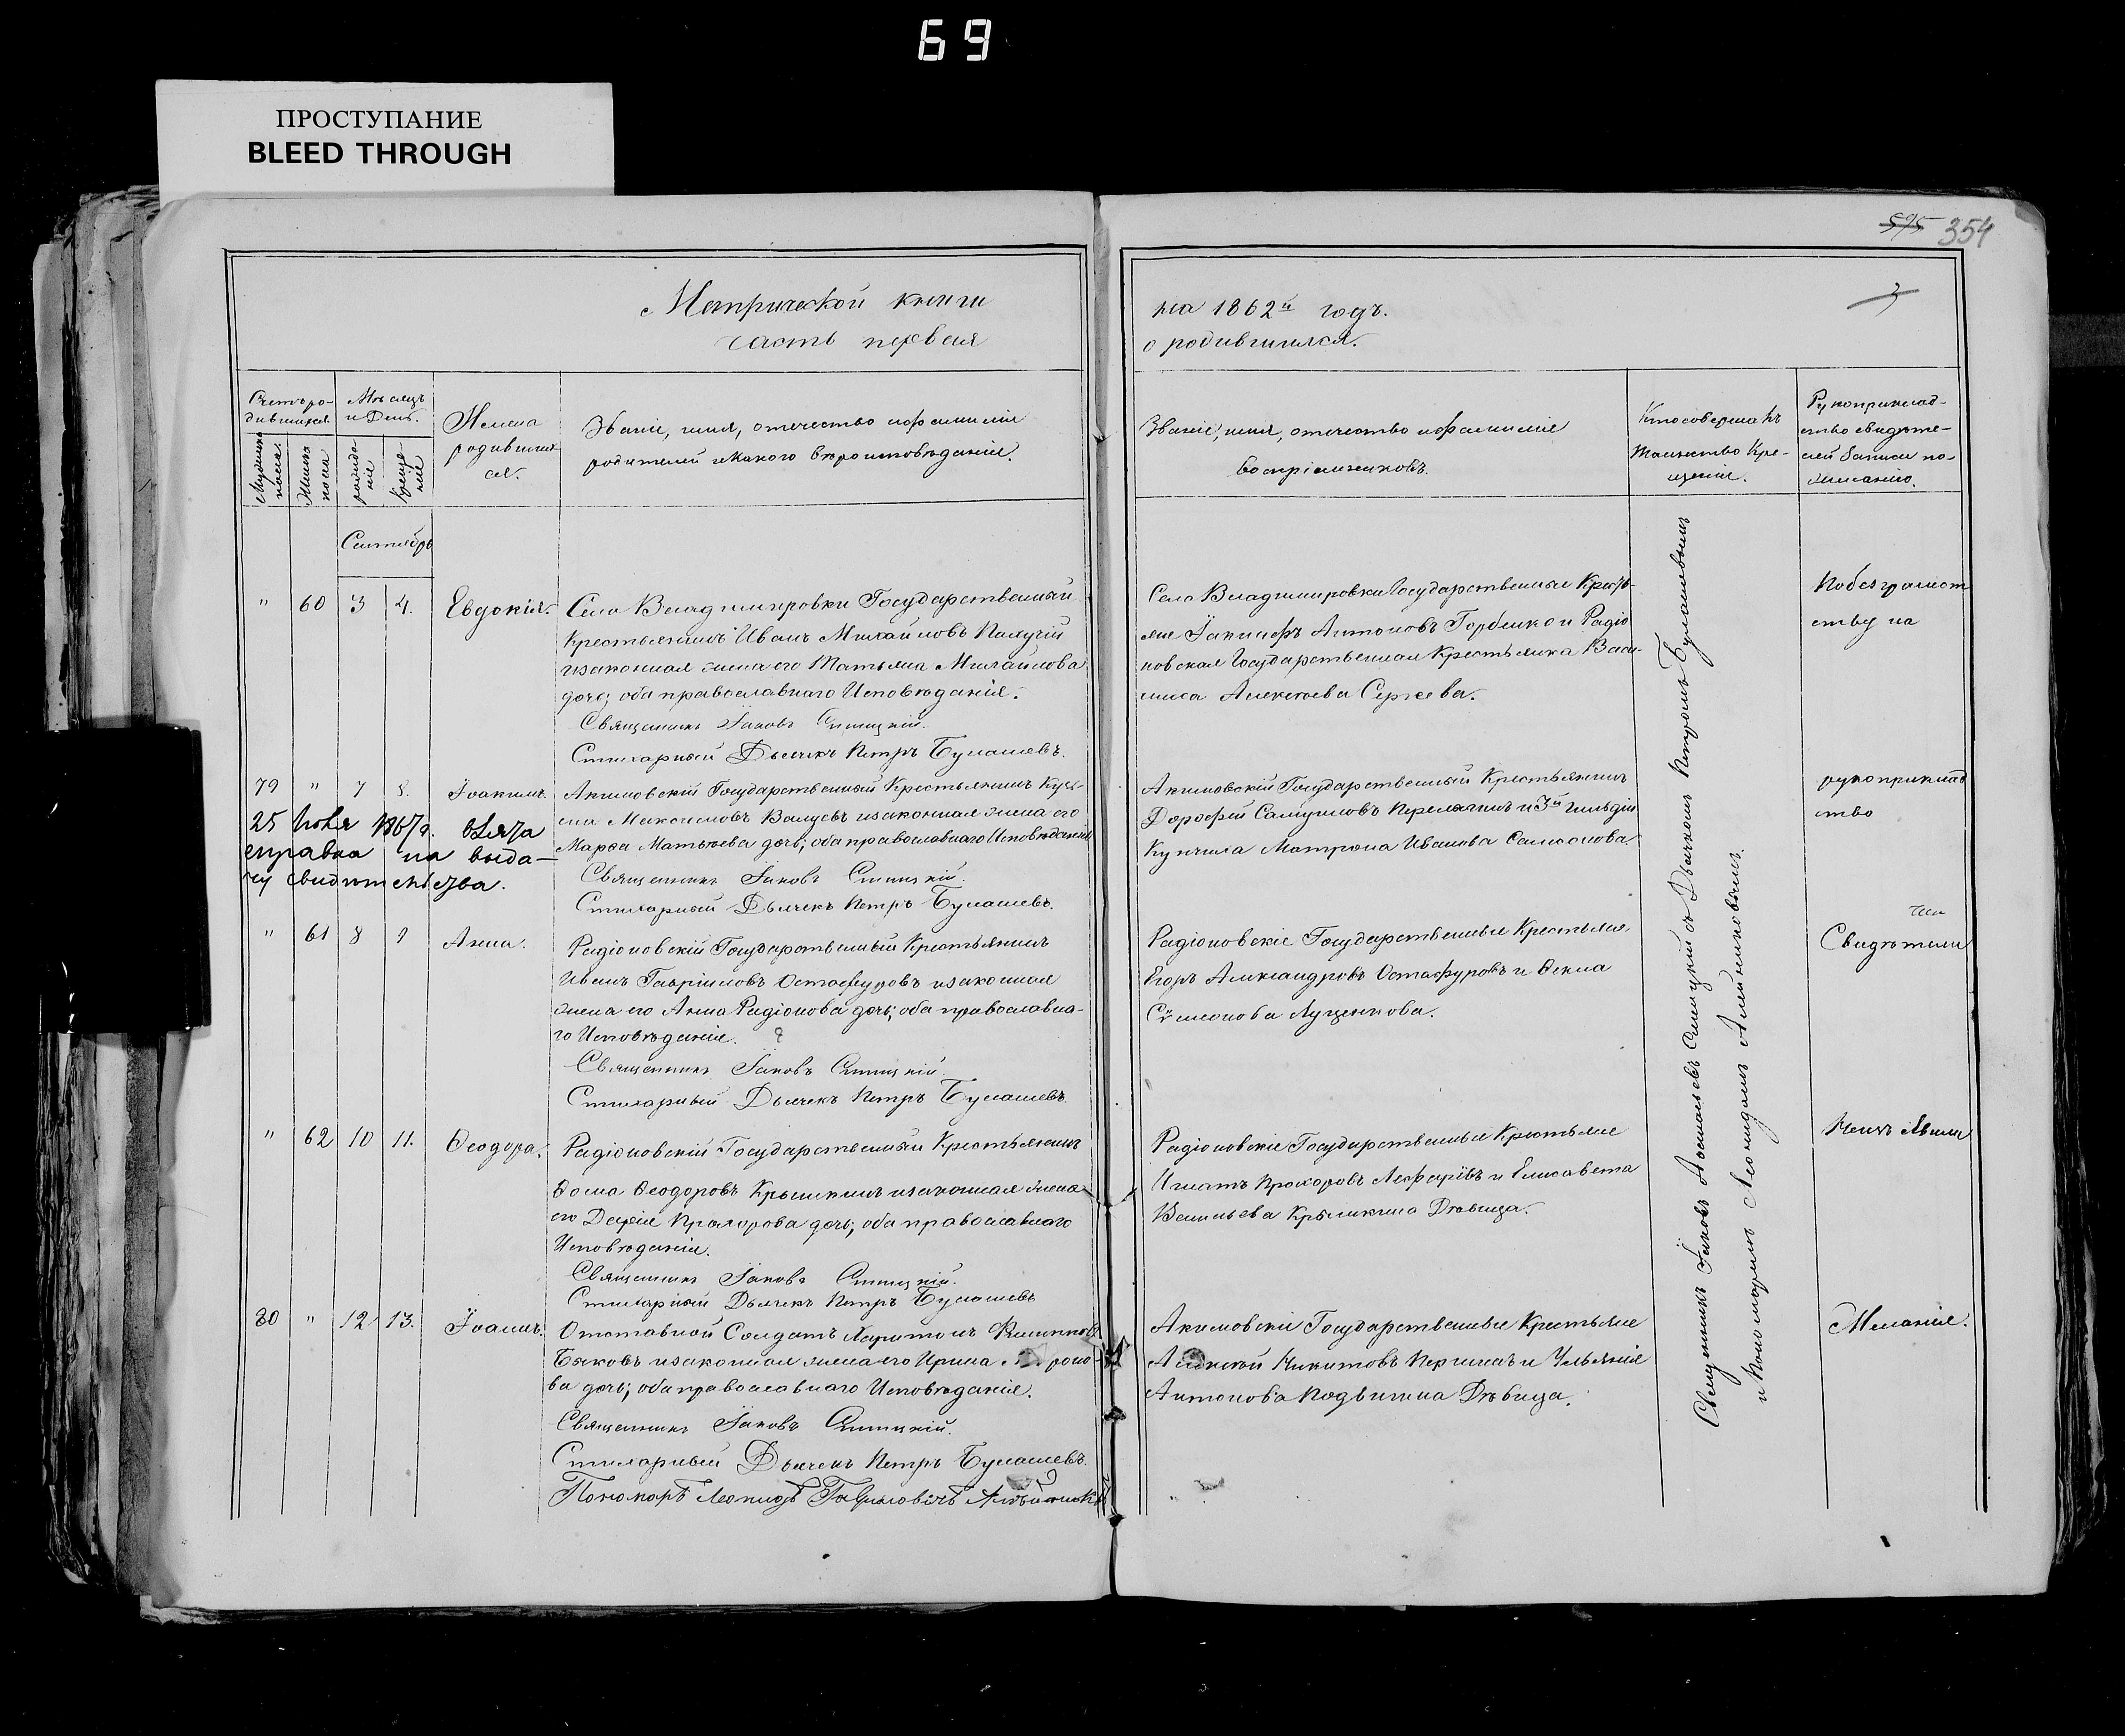 69
ПРОСТУПАНИЕ
BLEED THROUGH
575 354
Метрической книги
часть первая
на 1862й годъ.
о родившихся.
3
Счетъ ро-
дившихся.
Мѣсяцъ
и День.
Мужеска
пола.
Женска
пола
рожде
нія
креще
нія
Имена
родивших
ся.
Званіе, имя, отечество и фамилія
родителей и какого вѣроисповѣданія.
Званіе, имя, отечество и фамилія
воспріемниковъ.
Кто совершалъ
таинство Кре-
щенія.
Рукоприклад-
ство свидѣте-
лей записи по-
желанію.
Сентябрь
" 60 3 4. Евдокія.
Села Владимировки Государственный
Крестьянинъ Иванъ Михайловъ
и законная жена его Татьяна Михайлова
дочь; оба православнаго Исповѣданія.
Священникъ Іаковъ Синицкій.
Стихарный Дьячекъ Петръ Булашевъ.
Села Владимировки Государственные Кресть-
яне Іакинфъ Антоновъ Горбенко и Радіо
новская Государственная Крестьянка Васи-
лиса Алексѣева Сергѣева.
По безграмот
ству на
79 " 7 8. Іоакимъ.
Акимовскій Государственный Крестьянинъ Кузь-
ма Максимовъ Валуевъ и законная жена его
Марѳа Матвѣева дочь; оба православнаго Исповѣданія
Священникъ Іаковъ Синицкій.
Стихарный Дьячекъ Петръ Булашевъ.
25 1867г. взята
справка на выда-
чу свидѣтельства.
Акимовскій Государственный Крестьянинъ
Дорофей Самуиловъ и 3й гильдіи
Купчиха Матрона Иванова Самсонова.
рукоприклад
ство
" 61 8 9 Анна.
Радіоновскій Государственный Крестьянинъ
Иванъ Гавріиловъ Остафуровъ и законная
жена его Анна Радіонова дочь; оба православна-
го Исповѣданія.
Священникъ Іаковъ Синицкій.
Стихарный Дьячекъ Петръ Булашевъ.
Радіоновскіе Государственные Крестьяне
Егоръ Александровъ Остафуровъ и Ѳекла
Сѵмеонова Луценкова.
Свидѣтели
" 62 10 11. Ѳеодора.
Радіоновскій Государственный Крестьянинъ
Ѳома Ѳеодоровъ Крыжкинъ и законная жена
его Дарія Прохорова дочь; оба православнаго
Исповѣданія.
Священникъ Іаковъ Синицкій.
Стихарный Дьячекъ Петръ Булашевъ
Радіоновскіе Государственные Крестьяне
Игнатъ Прохоровъ и Елисавета
Васильева Дѣвица.
80 " 12 13. Іоаннъ.
Отставной Солдатъ Харитонъ
и законная жена его Ирина
ва дочь; оба православнаго Исповѣданія.
Священникъ Іаковъ Синицкій.
Стихарный Дьячекъ Петръ Булашевъ.
Пономарь Леонидъ Гавриловичъ
Акимовскіе Государственные Крестьяне
Алексѣй Никитовъ и Ульянія
Антонова Дѣвица.
Желанія.
Священникъ Іаковъ Синицкій съ Дьячкомъ Петромъ Булашевымъ
и Пономаремъ Леонидомъ Алейниковымъ.